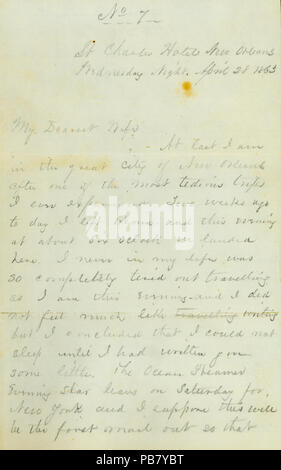 No 7
St Charles Hotel New Orleans
Wednesday Night. April 28 1863
My Dearest Wife
At last I am
in the great City of New Orleans
after one of the most tedious trips
I ever experienced. Two weeks ago
to day I left Home and this evening
at about six oclock we landed
here. I never in my life was
so completely tired out travelling
as I am this Evening and I did
not feel much like travelling writing
but I concluded that I could not
sleep until I had written you
some little. The Ocean Steamer
Evening Star leaves on Saturday for
New York and I suppose this will
be the first mail out so that
alamy
PB7YBT